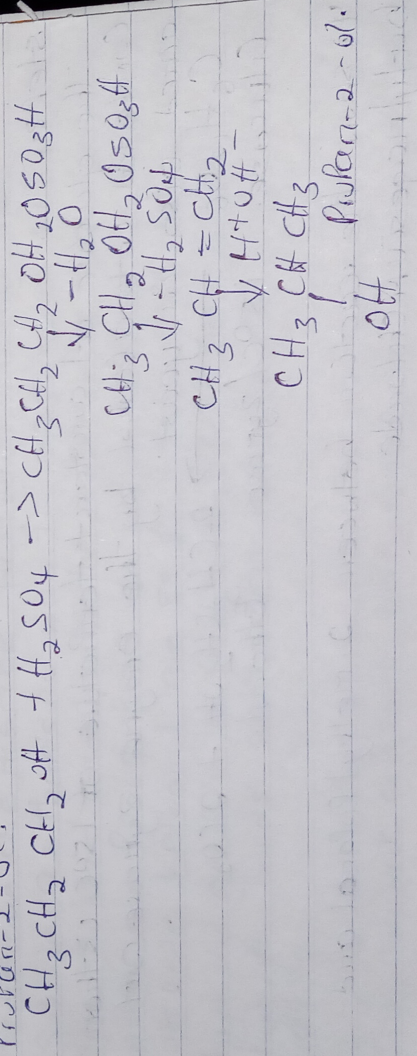 Propan-2-ol.
CH3CH2CH2OH + H2SO4 -> CH3CH2CH2OH2OSO3H
↓ -H2O
CH3CH2OH2OSO3H
↓ -H2SO4
CH3CH=CH2
↓ H+OH-
CH3CHCH3
| Propan-2-ol.
OH